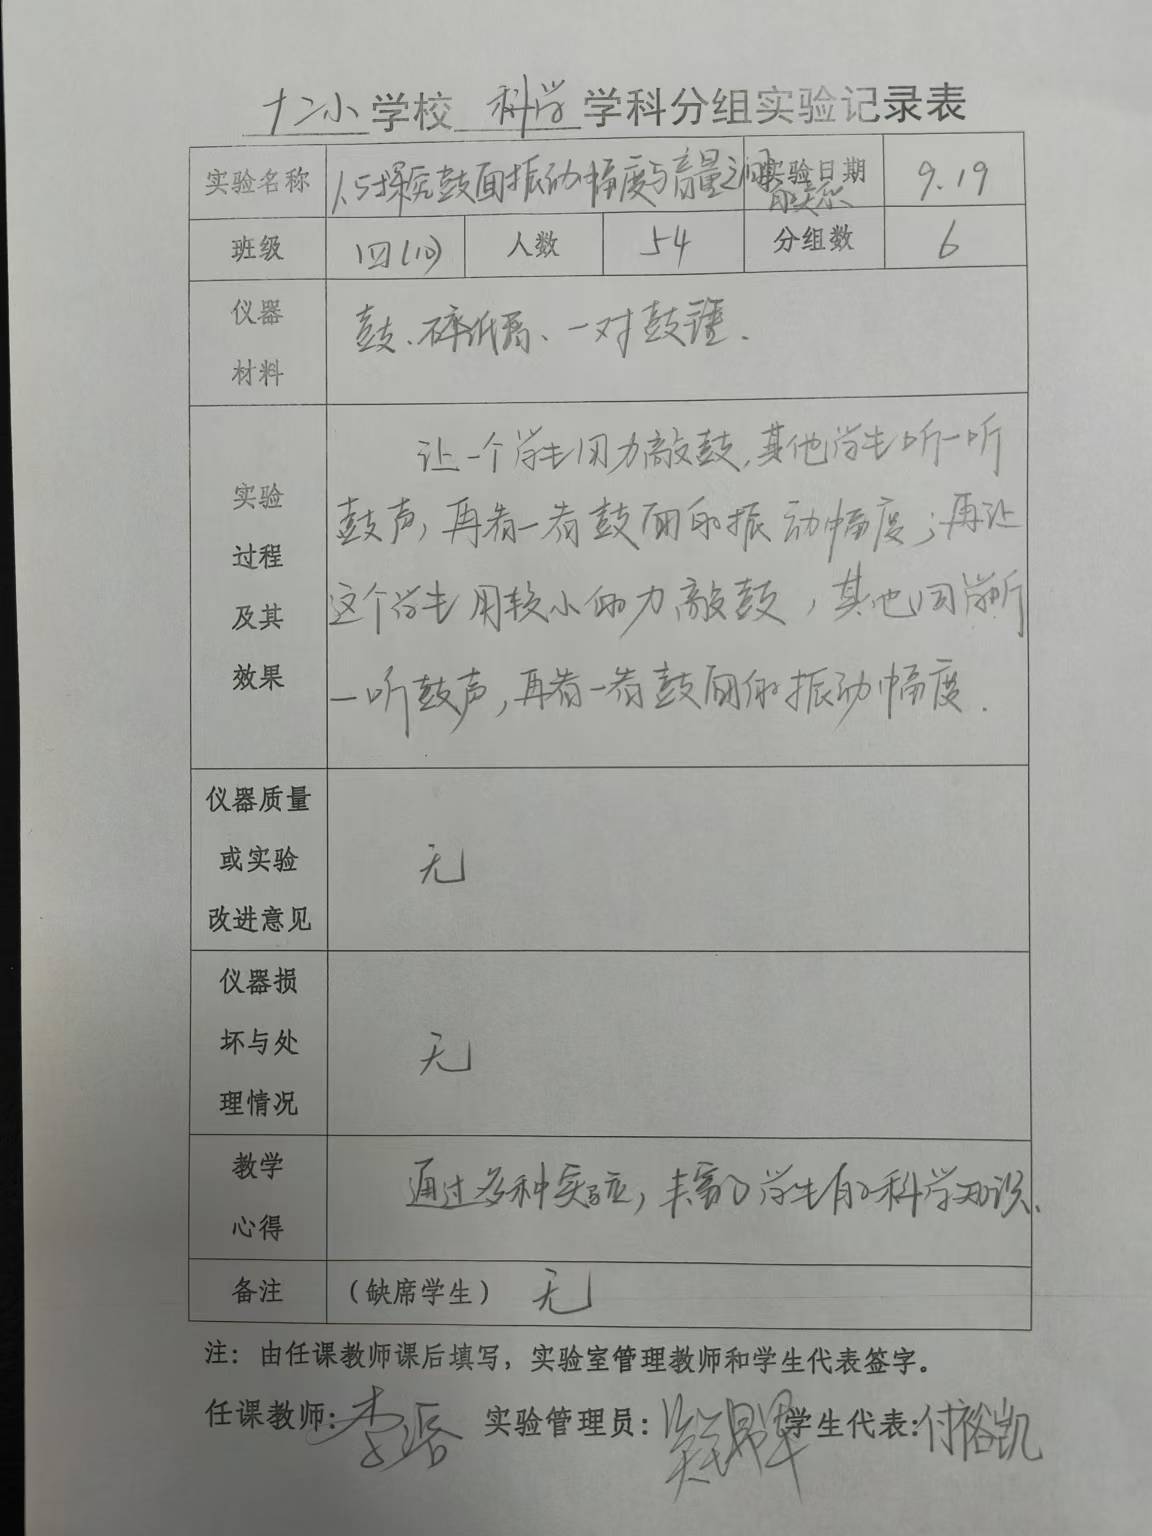 十二小学校 科学 学科分组实验记录表
实验名称 1.5探究鼓面振动幅度与音量之间的关系 实验日期 9.19
班级 四(10) 人数 54 分组数 6
仪器
材料
鼓、碎纸屑、一对鼓锤.
实验
过程
及其
效果
让一个学生用力敲鼓,其他学生听一听
鼓声,再看一看鼓面的振动幅度;再让
这个学生用较小的力敲鼓,其他同学听
一听鼓声,再看一看鼓面的振动幅度.
仪器质量
或实验
改进意见
无
仪器损
坏与处
理情况
无
教学
心得
通过多种实验,丰富了学生的科学知识.
备注 (缺席学生) 无
注：由任课教师课后填写，实验室管理教师和学生代表签字。
任课教师: 李 实验管理员: 学生代表: 付裕凯